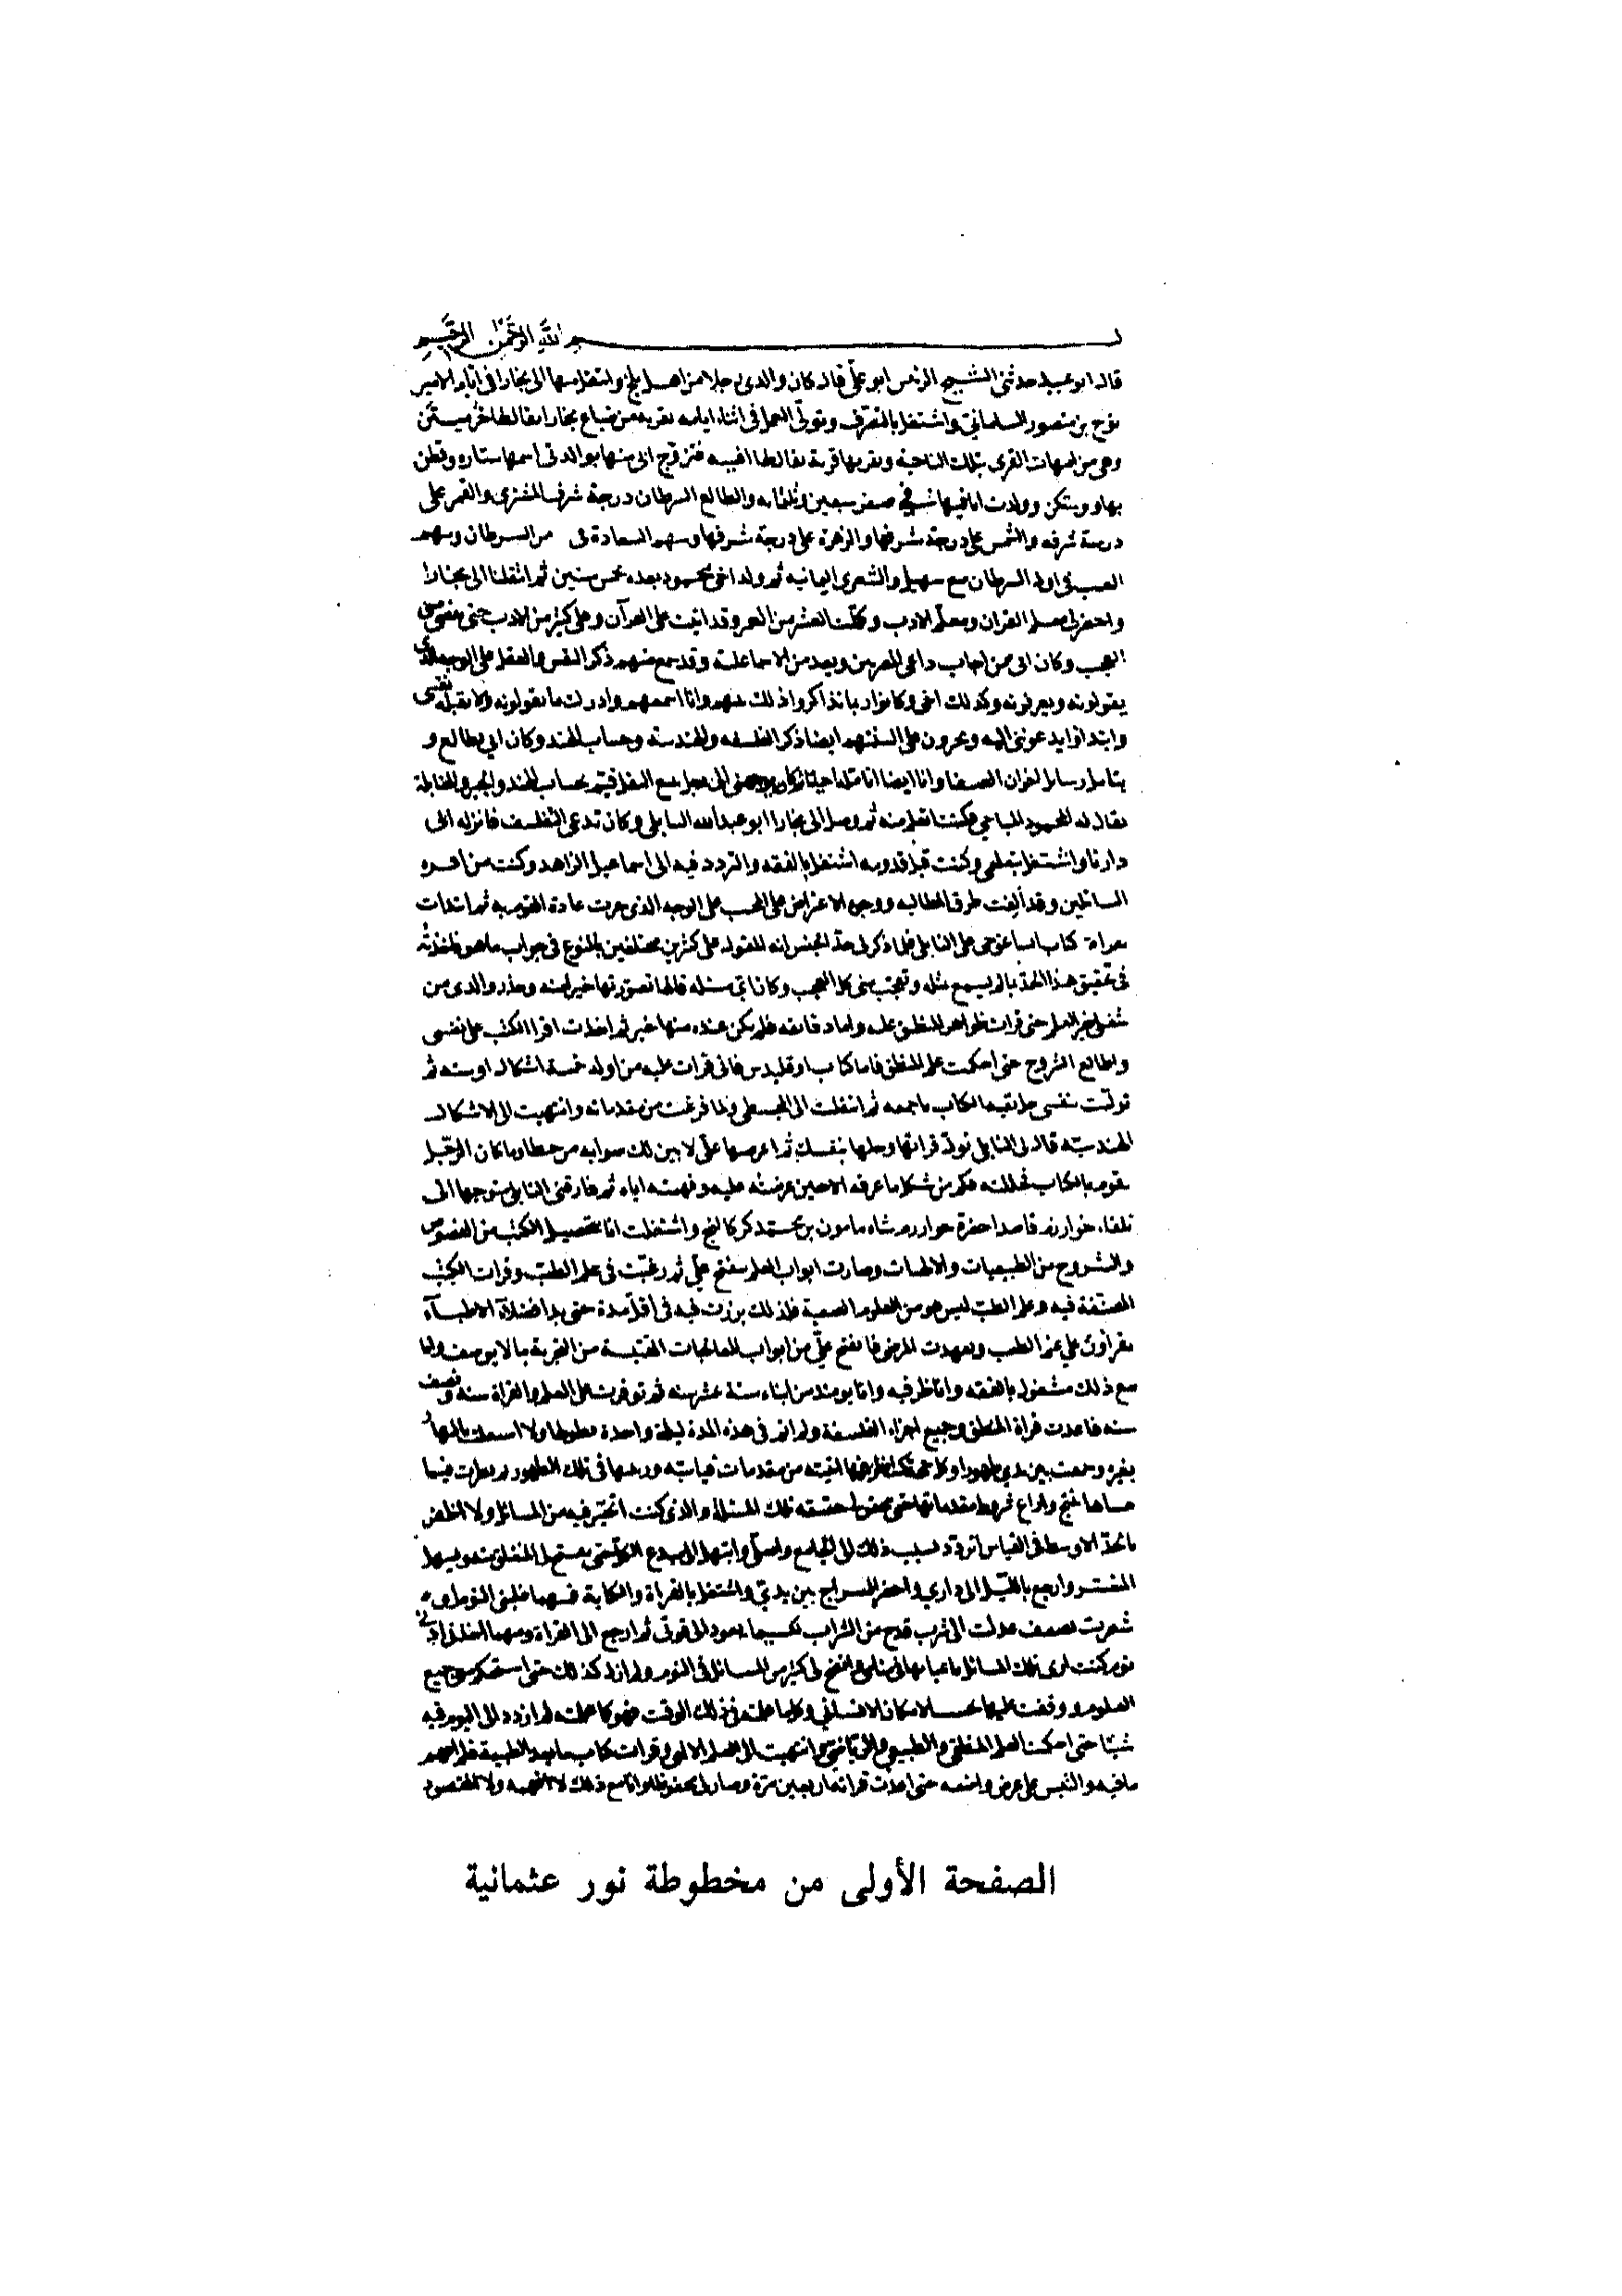 بسم الله الرحمن الرحيم
قال ابو عبيد حدثنى الشيخ الرئيس ابو على قال كان والدى رجلا من اهل بلخ وانتقل منها الى بخارا فى ايام الامير
نوح بن منصور السامانى واشتغل بالتصرف وتولى العمل فى اثناء ايامه بقرية من ضياع بخارا يقال لها خرميثن
وهى من امهات القرى بتلك الناحية وبقربها قرية يقال لها افشنه فتزوج ابى منها بوالدتى اسمها ستاره وقطن
بها وسكن وولدت انا فيها فى صفر سبعين وثلثمايه والطالع السرطان درجة شرف المشترى والقمر على
درجة شرفه والشمس على درجة شرفها والزهرة على درجة شرفها وسهم السعادة فى من السرطان وسهم
الغيب فى اول السرطان مع سهيل والشعرى اليمانيه ثم ولد اخى محمود بعده بخمس سنين ثم انتقلنا الى بخارا
واحضر لى معلم القران ومعلم الادب وكملت العشر من العمر وقد اتيت على القرآن وعلى كثير من الادب حتى يقضى منى
العجب وكان ابى ممن اجاب داعى المصريين ويعد من الاسماعيلية وقد سمع منهم ذكر النفس والعقل على الوجه الذى
يقولونه ويعرفونه وكذلك اخى وكانوا ربما تذاكروا ذلك بينهم وانا اسمعهم وادرك ما يقولونه ولا تقبله نفسى
وابتداوا يدعوننى اليه ويجرون على السنتهم ايضا ذكر الفلسفه والهندسة وحساب الهند وكان ابى يطالع و
يتامل رسايل اخوان الصفا وانا ايضا اتامله احيانا وكان يوجهنى الى رجل يبيع البقل قيم بحساب الهند والجبر والمقابلة
يقال له محمود المساحى فكنت اتعلم منه ثم وصل الى بخارا ابو عبدالله الناتلى وكان تدعى التفلسف فانزله ابى
دارنا واشتغل بتعلمى وكنت قبل قدومه اشتغل بالفقه والتردد فيه الى اسماعيل الزاهد وكنت من اجود
السائلين وقد الفت طرق المطالبه ووجوه الاعتراض على المجيب على الوجه الذى جرت عادة القوم به ثم ابتدات
بقراءة كتاب ايساغوجى على الناتلى فلما ذكر لى حد الجنس انه المقول على كثيرين مختلفين بالنوع فى جواب ما هو فاخذته
فى تحقيق هذا الحد بما لم يسمع مثله وتعجب منى كل العجب وكان اى مسئله قالها تصورتها خيرا منه وحذر والدى من
شغلى بغير العلم حتى قرات ظواهر المنطق عليه واما دقايقه فلم يكن عنده منها خبر ثم اخذت اقرا الكتب على نفسى
واطالع الشروح حتى احكمت علم المنطق فاما كتاب اوقليدس فانى قرات عليه من اوله خمسة اشكال او سته ثم
توليت بنفسى حل بقية الكتاب باجمعه ثم انتقلت الى المجسطى ولما فرغت من مقدماته وانتهيت الى الاشكال
الهندسيه قال لى الناتلى تولّ قراتها وحلها بنفسك ثم اعرضها على لابين لك صوابه من خطاه وما كان الرجل
يقوم بالكتاب فحللته فكم من شكل ما عرفه الا حين عرضته عليه وفهمته اياه ثم فارقنى الناتلى متوجها الى
تلقاء خوارزم قاصدا حضرة خوارزم شاه مامون بن محمد كركانج واشتغلت انا بتحصيل الكتب من الفصوص
والشروح من الطبيعيات والالهيات وصارت ابواب العلم ينفتح على ثم رغبت فى علم الطب وقرات الكتب
المصنفة فيه وعلم الطب ليس هو من العلوم الصعبة فلذلك برزت فيه فى اقل مدة حتى بدا فضلاء الاطباء
يقرأون على علم الطب وتعهدت المرضى فانفتح على من ابواب المعالجات المقتبسة من التجربة ما لا يوصف وانا
مع ذلك مشغول بالفقه واناظر فيه وانا يومئذ من ابناء ستة عشر سنه ثم توفرت على العلم والقراة سنه ونصف
سنه فاعدت قراة المنطق وجميع اجزاء الفلسفة ولم انم فى هذه المدة ليلة واحدة بطولها ولا اشتغلت بالنهار
بغيره وجمعت بين يدى ظهورا وكل حجة كنت انظر فيها اثبته من مقدمات قياسيّه ورتبتها فى تلك الظهور ثم نظرت فيما
عساها تنتج واراعى شروط مقدماتها حتى تحقق لى حقيقة تلك المسئلة والذى كنت اتحير فيه من المسائل ولا اظفر
بالحد الاوسط فى القياس اتردد بسبب ذلك الى الجامع واصلى وابتهل الى مبدع الكل حتى يفتح لى المنغلق منه ويسهل
المتعسر وارجع بالليل الى دارى واحضر السراج بين يدى واشتغل بالقراة والكتابة فمهما غلبنى النوم او
شعرت بضعف عدلت الى شرب قدح من الشراب لكيما يعود الى قوتى ثم ارجع الى القراة ومهما اخذنى ادنى
نوم كنت ارى تلك المسائل باعيانها فى منامى واتضح لى كثير من المسائل فى النوم ولم ازل كذلك حتى استحكم معى جميع
العلوم ووقفت عليها بحسب الامكان الانسانى وكلما علمته فى ذلك الوقت فهو كما علمته لم ازدد الى اليوم فيه
شيئا حتى احكمت العلم المنطقى والطبيعى والرياضى وانتهيت الى العلم الالهى وقرات كتاب ما بعد الطبيعة فلم افهم
ما فيه والتبس على غرض واضعه حتى اعدت قراته اربعين مرة وصار لى محفوظا وانا مع ذلك لا افهمه ولا المقصود
الصفحة الأولى من مخطوطة نور عثمانية